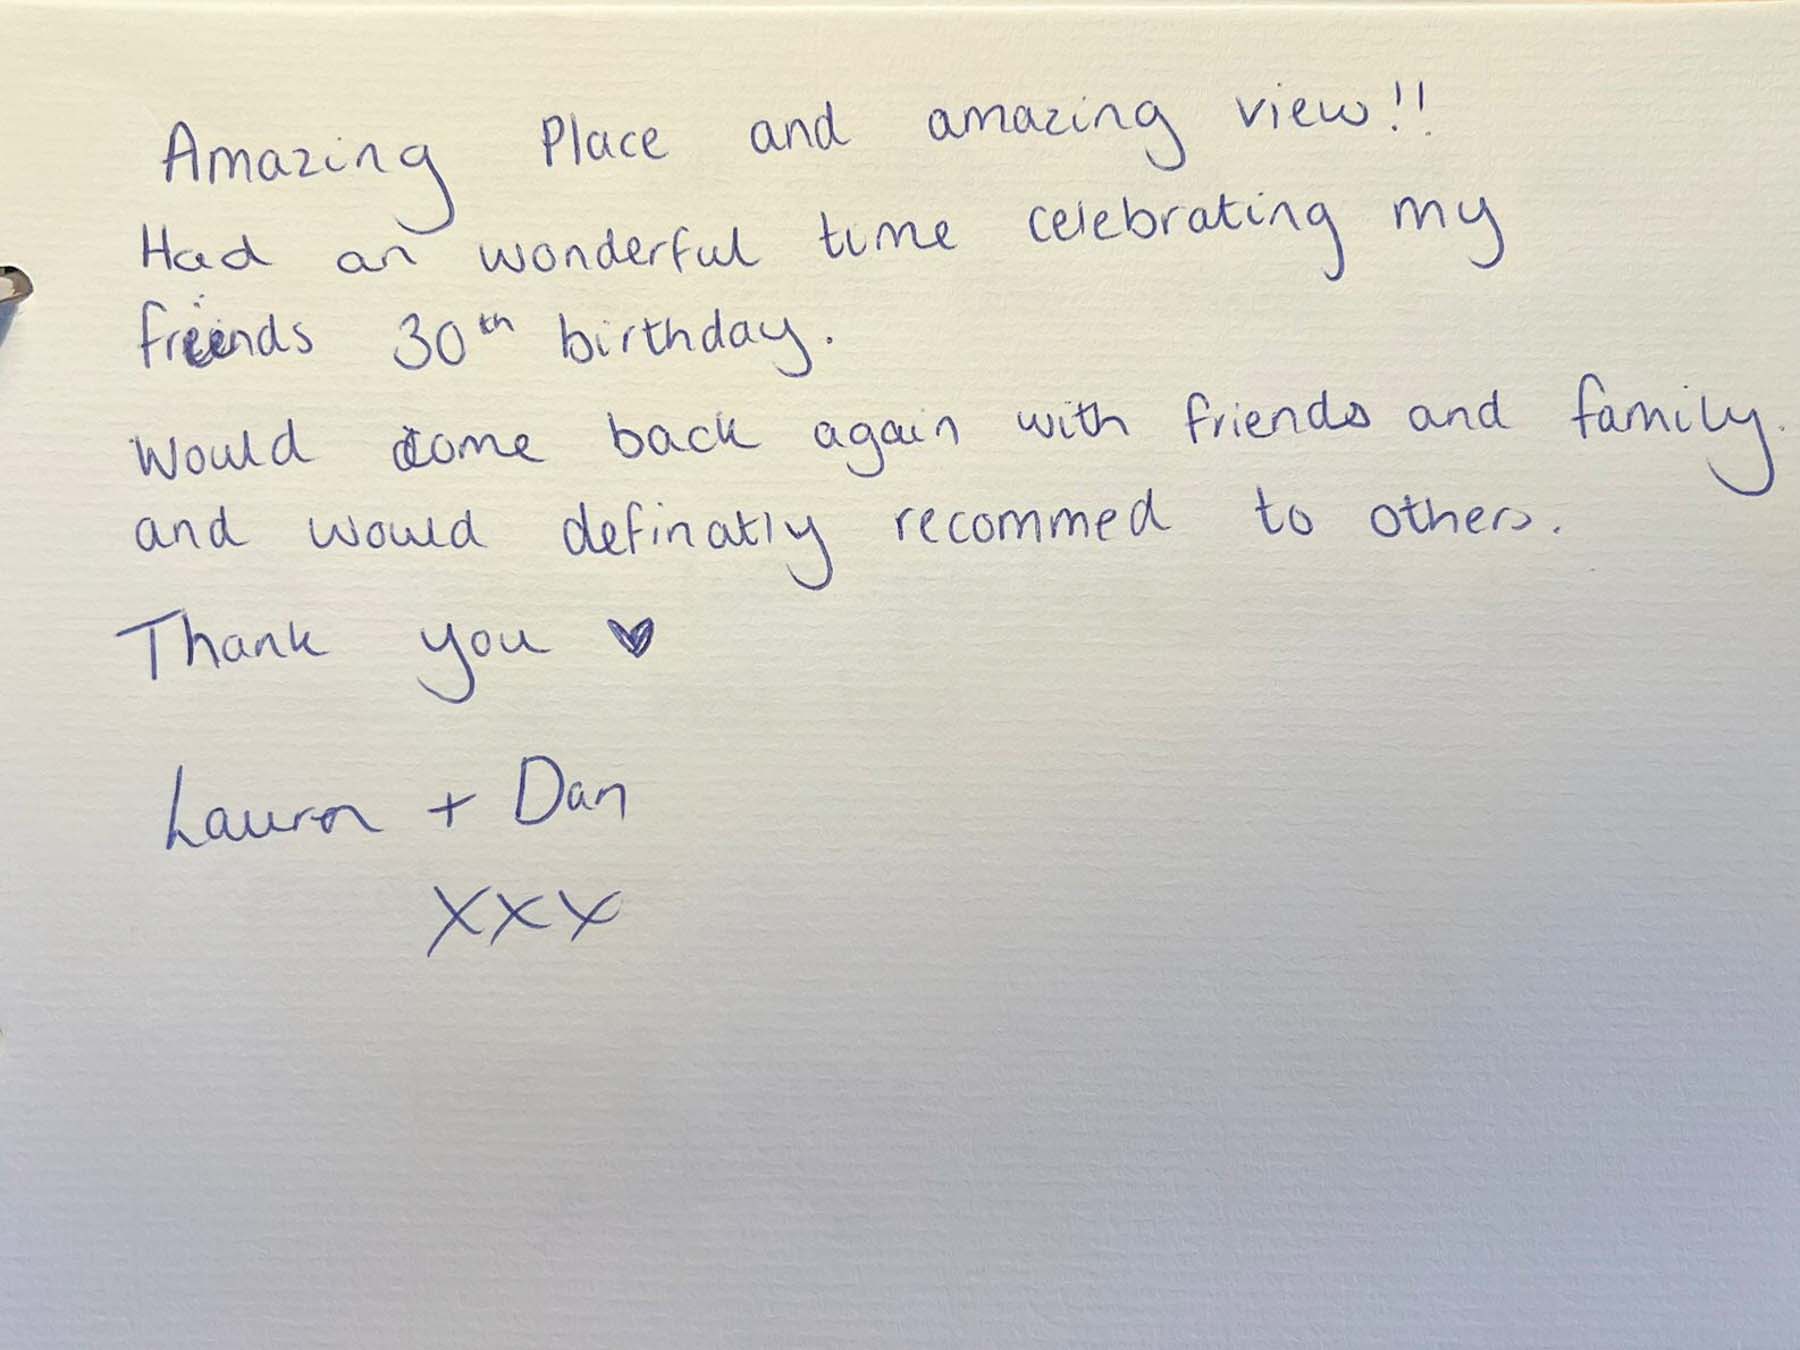 Amazing Place and amazing view!!
Had an wonderful time celebrating my
friends 30th birthday.
Would come back again with friends and family.
and would definatly recommed to others.
Thank you ♥
Lauren + Dan
xxx